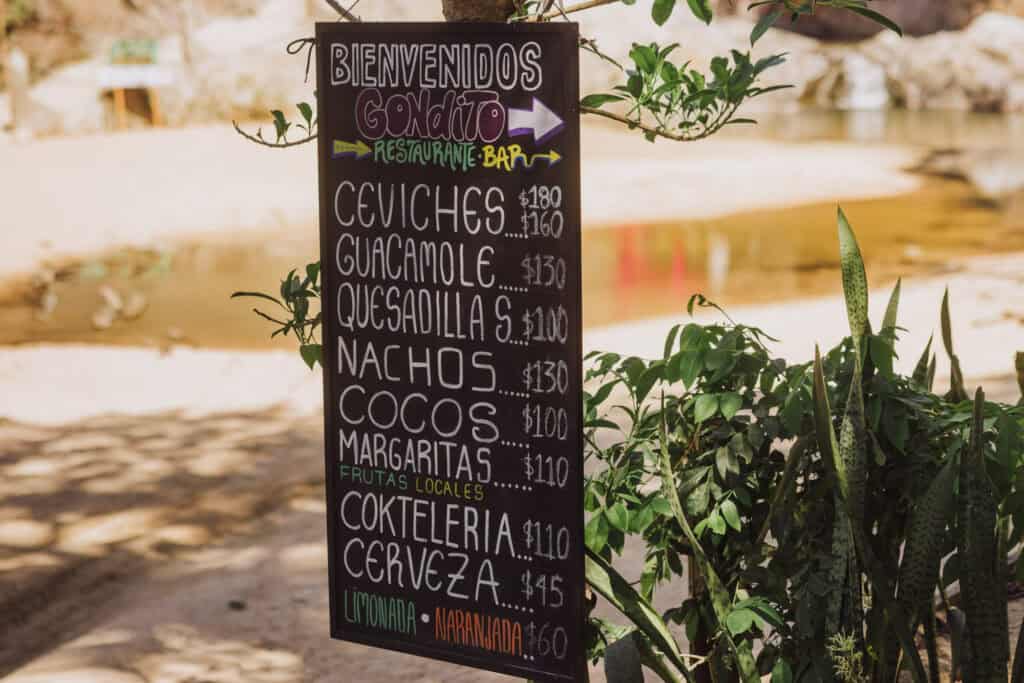 BIENVENIDOS
GONDITO
RESTAURANTE · BAR
CEVICHES....$180
$160
GUACAMOLE.....$130
QUESADILLAS....$100
NACHOS......$130
COCOS.....$100
MARGARITAS......$110
FRUTAS LOCALES
COKTELERIA...$110
CERVEZA.....$45
LIMONADA · NARANJADA $60